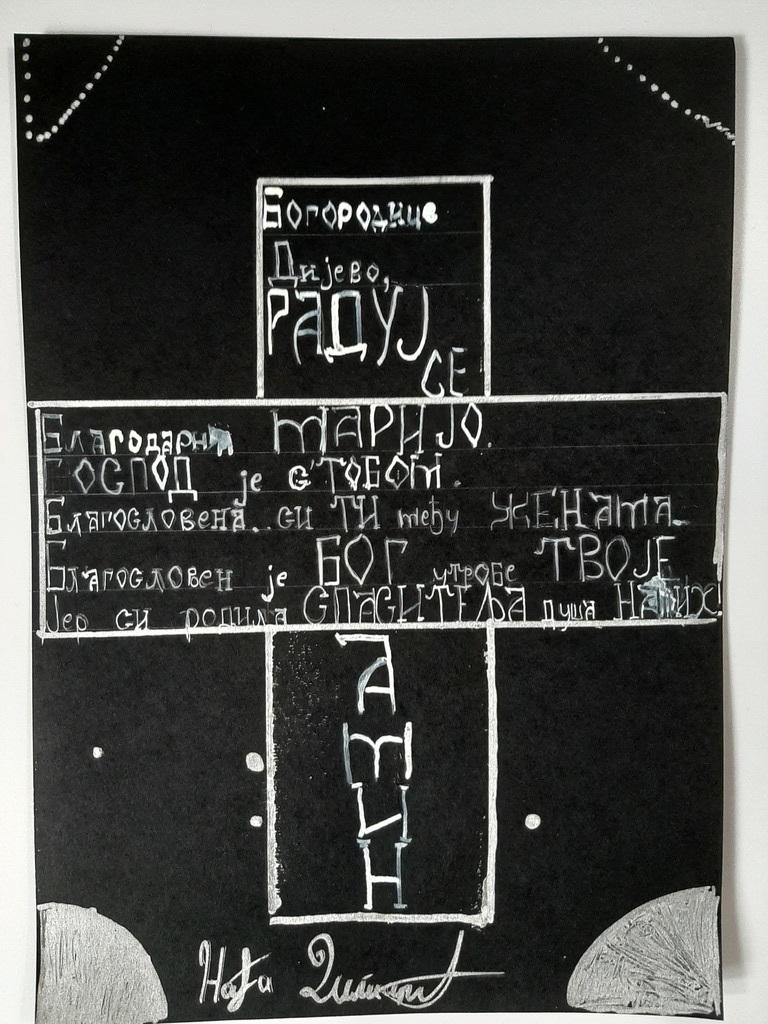 Богородице
Дијево,
РАДУЈ
СЕ
Благодарна МАРИЈО.
ГОСПОД је с' ТОБОМ.
Благословена си ТИ међу ЖЕНАМА.
Благословен је БОГ утробе ТВОЈЕ
Јер си родила СПАСИТЕЉА душа НАШИХ!
АМИН